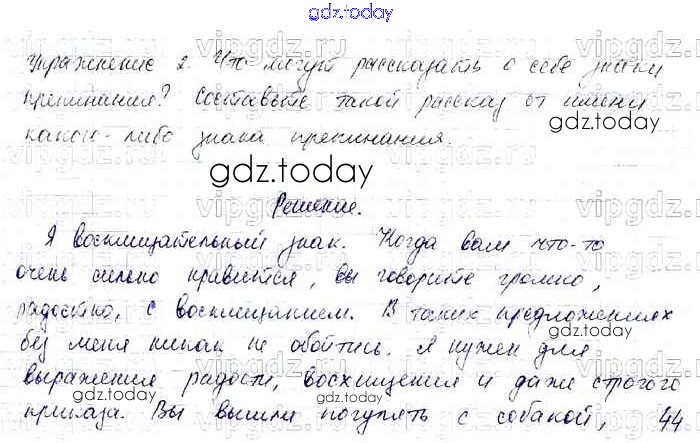 gdz.today
Упражнение 2. Что могут рассказать о себе знаки
препинания? Составьте такой рассказ от имени
какого-либо знака препинания.
gdz.today
gdz.today
Решение.
Я восклицательный знак. Когда вам что-то
очень сильно нравится, вы говорите громко,
радостно, с восклицанием. В таких предложениях
gdz.today
без меня никак не обойтись. Я нужен для
выражения радости, восхищения и даже строгого
gdz.today
приказа. Вы вышли погулять с собакой, 44